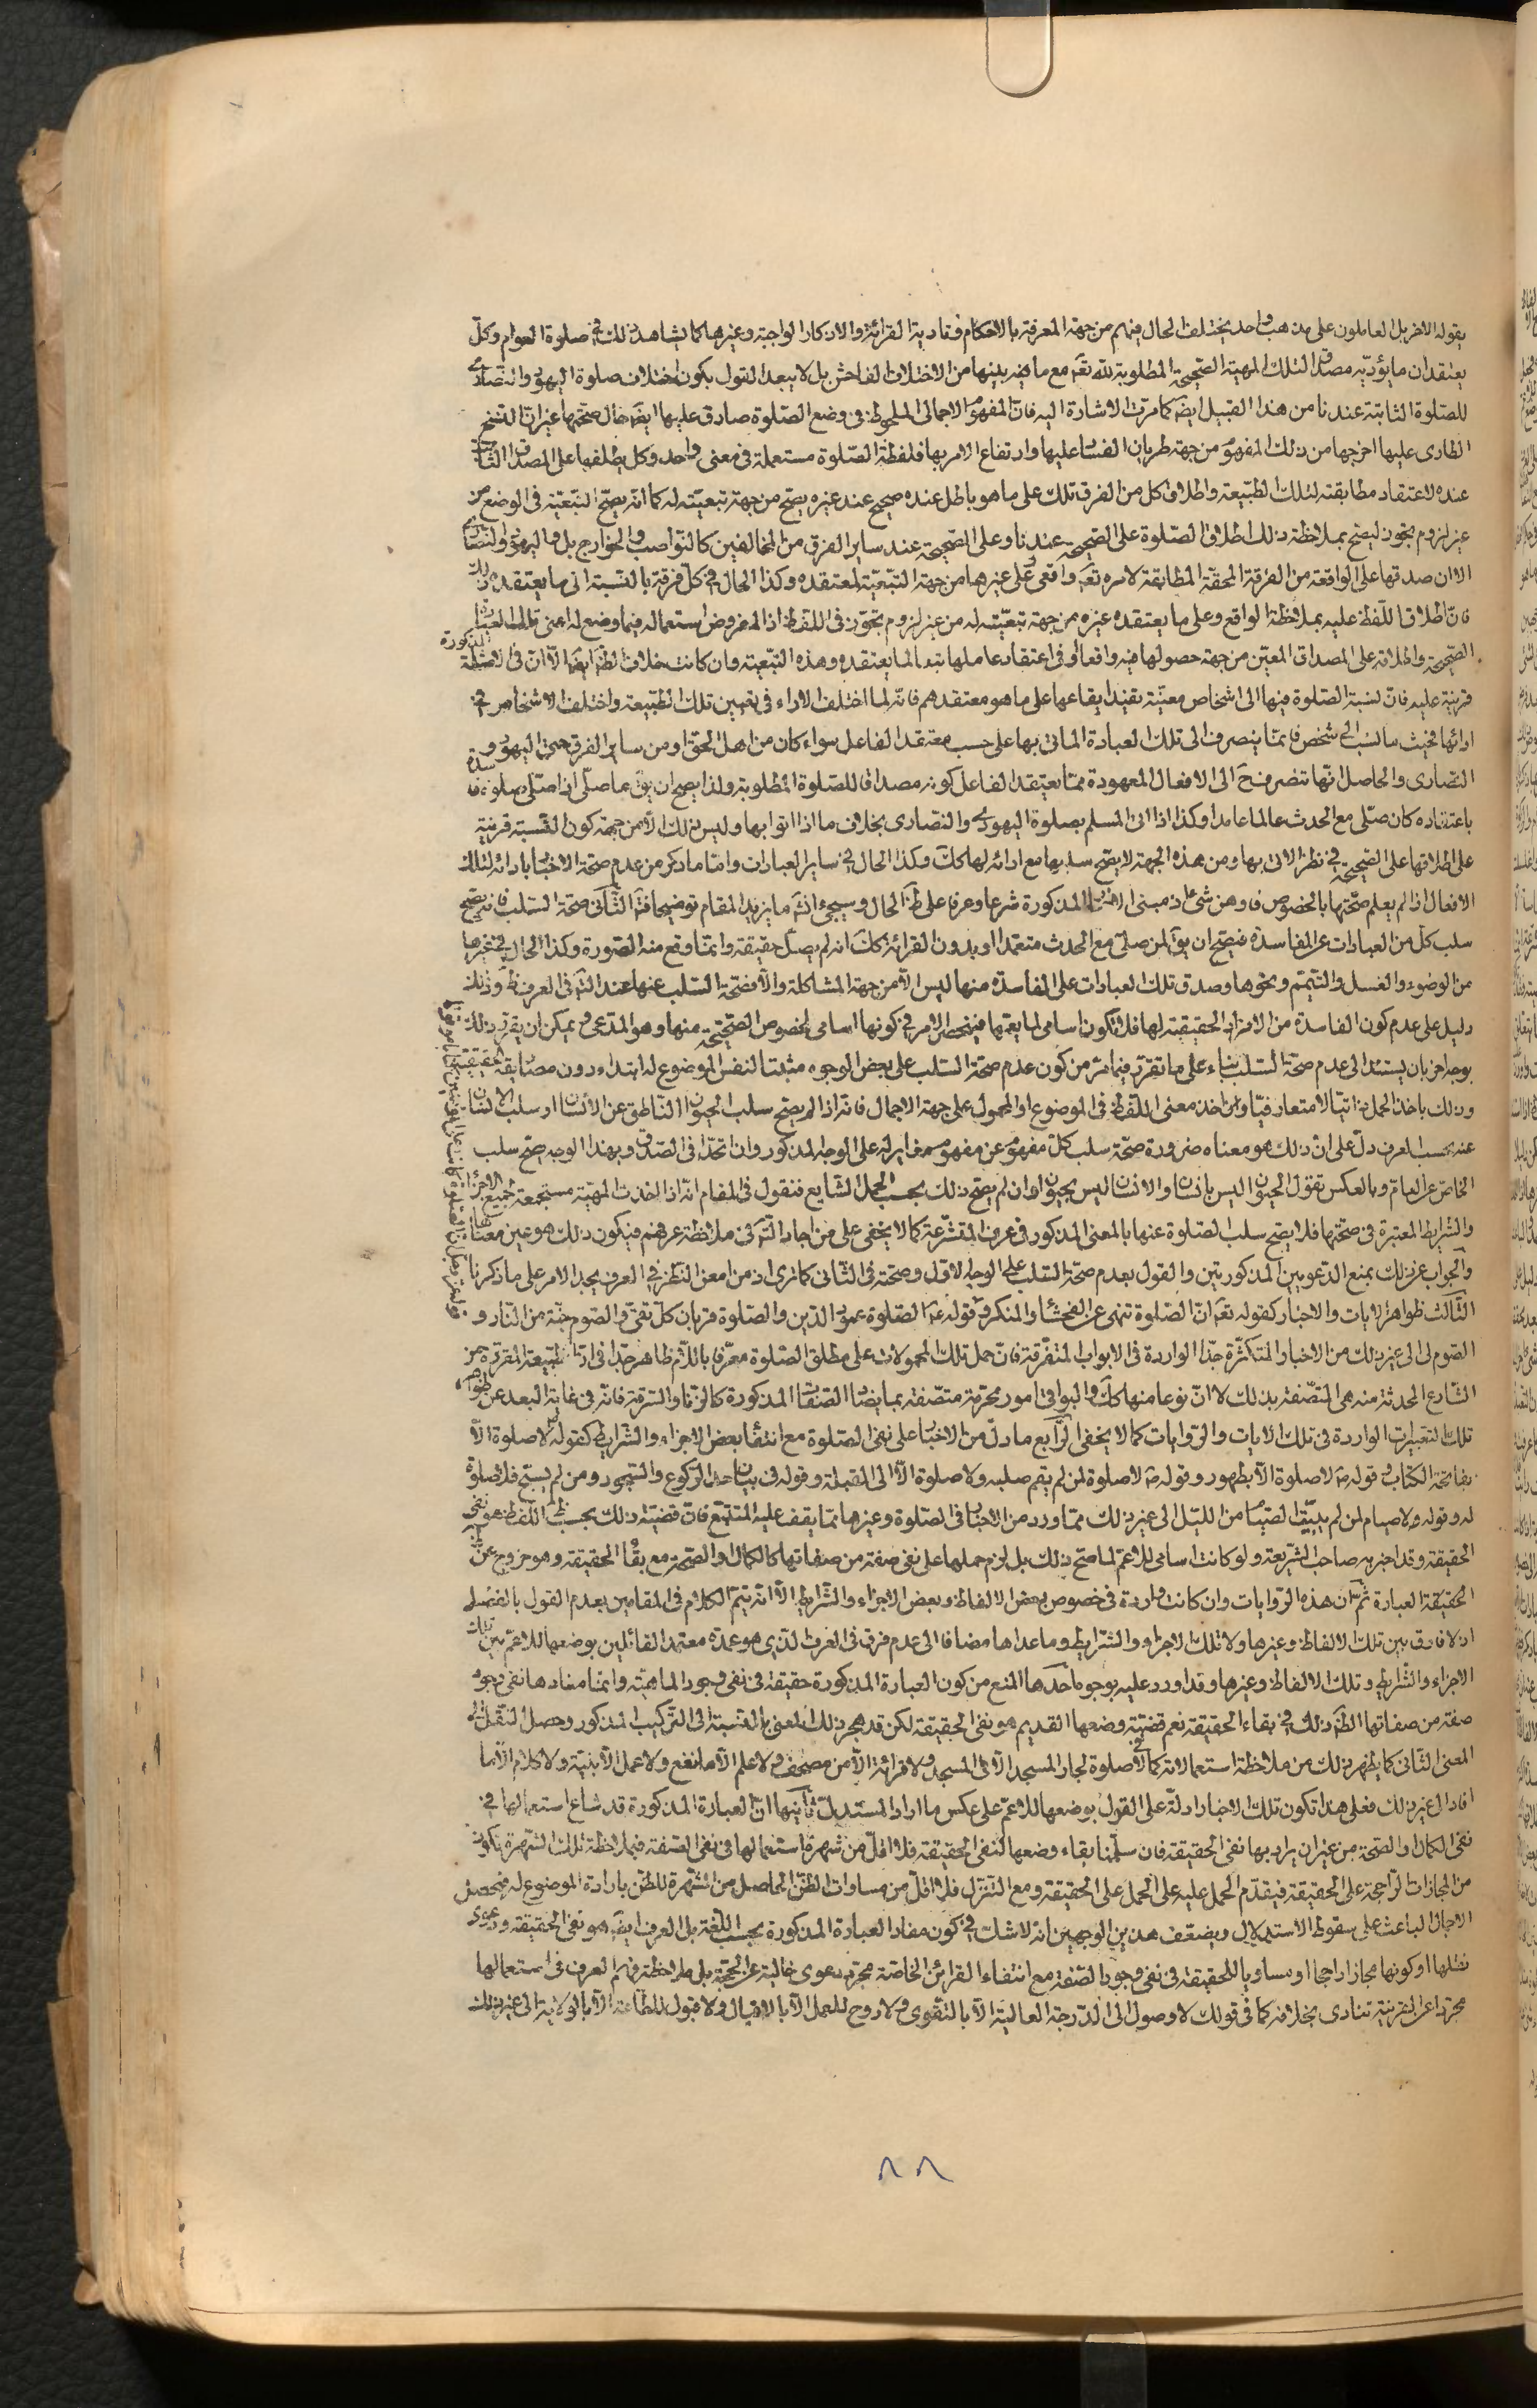 يقوله الاخر بل العاملون على مذهب واحد يختلف الحال فيهم من جهة المعرفة بالاحكام وتادية القرائة والاذكار الواجبة وغيرها كما يشاهد ذلك في صلوة العوام وكل
يعتقد ان ما يؤديه مصداق لتلك المهية الصحيحة المطلوبة لله تعه مع ما فيه بينها من الاختلاف الفاحش بل لا يبعد القول بكون اختلاف صلوة اليهود والنصارى
للصلوة الثابتة عندنا من هذا القبيل ايضه كما مرت الاشارة اليه فان المفهوم الاجمالى الملحوظ في وضع الصلوة صادق عليها ايضه حال صحتها غير ان النسخ
الطارى عليها اخرجها من ذلك المفهوم من جهة طريان الفساد عليها وارتفاع الامر بها فلفظة الصلوة مستعملة في معنى واحد وكل يطلقها على المصداق الثابت
عنده لاعتقاد مطابقته لتلك الطبيعة واطلاق كل من الفرق تلك على ما هو باطل عنده صحيح عند غيره يصح من جهة تبعيته له كما انه يصح التبعية في الوضع من
غير لزوم تجوز ليصح بملاحظة ذلك اطلاق الصلوة على الصحيحة عندنا وعلى الصحيحة عند ساير الفرق من المخالفين كالنواصب والخوارج بل واليهود والنصارى
الا ان صدقها على الواقعة من الفرقة المحقة المطابقة لامره تعه واقعى وعلى غيرها من جهة التبعية لمعتقده وكذا الحال في كل فرقة بالنسبة الى ما يعتقده ذلك
فان اطلاق اللفظ عليه بملاحظة الواقع وعلى ما يعتقده غيره من جهة تبعيته له من غير لزوم تجوز في اللفظ اذ المفروض استعماله فيما وضع له اعنى تلك العبادة
الصحيحة واطلاقه على المصداق المعين من جهة حصولها فيه واقعا او في اعتقاد عاملها تبعا لما يعتقده وهذه التبعية وان كانت خلاف الظه ايضا الا ان في الاضافة المذكورة
قرينة عليه فان نسبة الصلوة فيها الى اشخاص معينة يفيد ايقاعها على ما هو معتقدهم فانه لما اختلف الاراء في تعيين تلك الطبيعة واختلف الاشخاص في
ادائها فحيث ما نسب الى شخص فانما ينصرف الى تلك العبادة الماتى بها على حسب معتقد الفاعل سواء كان من اهل الحق او من ساير الفرق حتى اليهود و
النصارى والحاصل انها تنصرف ح الى الافعال المعهودة مما يعتقد الفاعل كونه مصداقا للصلوة المطلوبة ولذا يصح ان يق ما صلى اذا صلى صلوة فاسدة
باعتقاده كان صلى مع الحدث عالما عامدا وكذا اذا اتى المسلم بصلوة اليهود والنصارى بخلاف ما اذا اتوا بها وليس ذلك الا من جهة كون النسبة قرينة
على اطلاقها على الصحيحة في نظر الاتى بها ومن هذه الجهة لا يصح سلبها مع ادائه لها كك وكذا الحال في ساير العبادات واما ما ذكر من عدم صحة الاخبار بادائه لتلك
الافعال اذا لم يعلم صحتها بالخصوص فاوهن شئ اذ مبنى الاخبار المذكورة شرعا وعرفا على ظه الحال وسيجئ انشه ما يزيد المقام توضيحا فيه الثانى صحة السلب فانه يصح
سلب كل من العبادات عن الفاسدة فيصح ان يق لمن صلى مع الحدث متعمدا او بدون القرائة كك انه لم يصل حقيقة وانما وقع منه الصورة وكذا الحال في غيرها
من الوضوء والغسل والتيمم ونحوها وصدق تلك العبادات على الفاسدة منها ليس الا من جهة المشاكلة والا فصحة السلب عنها عند التامل في العرف ظه وذلك
دليل على عدم كون الفاسدة من الافراد الحقيقية لها فلا تكون اسامى لما يعمها فينحصر الامر في كونها اسامى لخصوص الصحيحة منها وهو المدعى ويمكن ان يقرر ذلك
بوجه اخر بان يستند الى عدم صحة السلب بناء على ما تقرر فيما مر من كون عدم صحة السلب على بعض الوجوه مثبتا لنفس الموضوع له ابتداء دون مصاديقه الحقيقية
وذلك باخذ الحمل ذاتيا لا متعارفيا واخذ معنى اللفظ في الموضوع او المحمول على جهة الاجمال فانه اذا لم يصح سلب الحيوان الناطق عن الانسان او سلب الانسان
عنه بحسب العرف دل على ان ذلك هو معناه ضرورة صحة سلب كل مفهوم عن مفهوم مغاير له على الوجه المذكور وان اتحدا في الصدق وبهذا الوجه صح سلب
الخاص عن العام وبالعكس تقول الحيوان ليس بانسان والانسان ليس بحيوان وان لم يصح ذلك بحسب الحمل الشايع فنقول في المقام انه اذا اخذت المهية مستجمعة لجميع الاجزاء
والشرايط المعتبرة في صحتها فلا يصح سلب الصلوة عنها بالمعنى المذكور في عرف المتشرعة كما لا يخفى على من اجاد التامل في ملاحظة عرفهم فيكون ذلك هو عين معناها
والجواب عن ذلك بمنع الدعويين المذكورتين والقول بعدم صحة السلب على الوجه الاول وصحته في الثانى كما ترى اذ من امعن النظر في العرف يجد الامر على ما ذكرنا
الثالث ظواهر الايات والاخبار كقوله تعه ان الصلوة تنهى عن الفحشاء والمنكر وقوله عه الصلوة عمود الدين والصلوة قربان كل تقى والصوم جنة من النار و
الصوم لى الى غير ذلك من الاخبار المتكثرة جدا الواردة في الابواب المتفرقة فان حمل تلك المحمولات على مطلق الصلوة معرفا باللام ظاهر جدا في ان الطبيعة المقررة من
الشارع المحدثة منه هي المتصفة بذلك لا ان نوعا منها كك والبواقى امور محرمة متصفة بما يضاد الصفات المذكورة كالزنا والسرقة فانه في غاية البعد عن ظواهر
تلك التعبيرات الواردة في تلك الايات والروايات كما لا يخفى الرابع ما دل من الاخبار على نفى الصلوة مع انتفاء بعض الاجزاء والشرايط كقوله لا صلوة الا
بفاتحة الكتاب وقوله صه لا صلوة الا بطهور وقوله صه لا صلوة لمن لم يقم صلبه ولا صلوة الا الى القبلة وقوله في بيان حد الركوع والسجود ومن لم يسبح فلا صلوة
له وقوله ولا صيام لمن لم يبيت الصيام من الليل الى غير ذلك مما ورد من الاخبار في الصلوة وغيرها مما يقف عليه المتتبع فان قضية ذلك بحسب ظه اللفظ هو نفى
الحقيقة وقد اخبر به صاحب الشريعة ولو كانت اسامى للاعم لما صح ذلك بل لزم حملها على نفى صفة من صفاتها كالكمال او الصحة مع بقاء الحقيقة وهو خروج عن ظه
الحقيقة العبارة ثم ان هذه الروايات وان كانت واردة في خصوص بعض الالفاظ وبعض الاجزاء والشرايط الا انه يتم الكلام في المقامين بعدم القول بالفصل
اذ لا فارق بين تلك الالفاظ وغيرها ولا تلك الاجزاء والشرايط وما عداها مضافا الى عدم فرق في العرف الذى هو عمدة معتمد القائلين بوضعها للاعم بين تلك
الاجزاء والشرايط وتلك الالفاظ وغيرها وقد اورد عليه بوجوه احدها المنع من كون العبارة المذكورة حقيقة في نفى وجود الماهية وانما مفادها نفى وجود
صفة من صفاتها الظه ذلك في بقاء الحقيقة نعم قضية وضعها القديم هو نفى الحقيقة لكن قد هجر ذلك المعنى بالنسبة الى التركيب المذكور وحصل النقل الى
المعنى الثانى كما يظهر ذلك من ملاحظة استعمالاته كما في لا صلوة لجار المسجد الا في المسجد ولا قرائة الا من مصحف ولا علم الا ما نفع ولا عمل الا بنية ولا كلام الا ما
افاد الى غير ذلك فعلى هذا تكون تلك الاخبار ادلة على القول بوضعها للاعم على عكس ما اراد المستدل ثانيها ان العبارة المذكورة قد شاع استعمالها في
نفى الكمال او الصحة من غير ان يراد بها نفى الحقيقة فان سلمنا بقاء وضعها لنفى الحقيقة فلا اقل من شهرة استعمالها في نفى الصفة فبملاحظة تلك الشهرة تكون
من المجازات الراجحة على الحقيقة فيقدم الحمل عليه على الحمل على الحقيقة ومع التنزل فلا اقل من مساوات الظن الحاصل من الشهرة للظن بارادة الموضوع له فيحصل
الاجمال الباعث على سقوط الاستدلال ويضعف هذين الوجهين انه لا شك في كون مفاد العبارة المذكورة بحسب اللغة بل العرف ايضه هو نفى الحقيقة ودعوى
نقلها او كونها مجازا راجحا او مساويا للحقيقة في نفى وجود الصفة مع انتفاء القرائن الخاصة مجرد دعوى خالية عن الحجة بل ملاحظة فهم العرف في استعمالها
مجردا عن القرينة تنادى بخلافه كما في قولك لا وصول الى الدرجة العالية الا بالتقوى ولا روح للعمل الا بالاقبال ولا قبول للطاعة الا بالولاية الى غير ذلك
٨٨